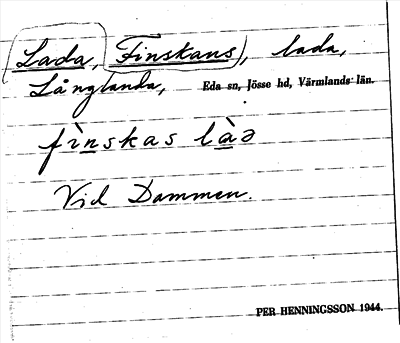 Lada, Finskans, lada,
Långlanda, Eda sn, Jösse hd, Värmlands län.
fìnskas làə
Vid Dammen.
PER HENNINGSSON 1944.